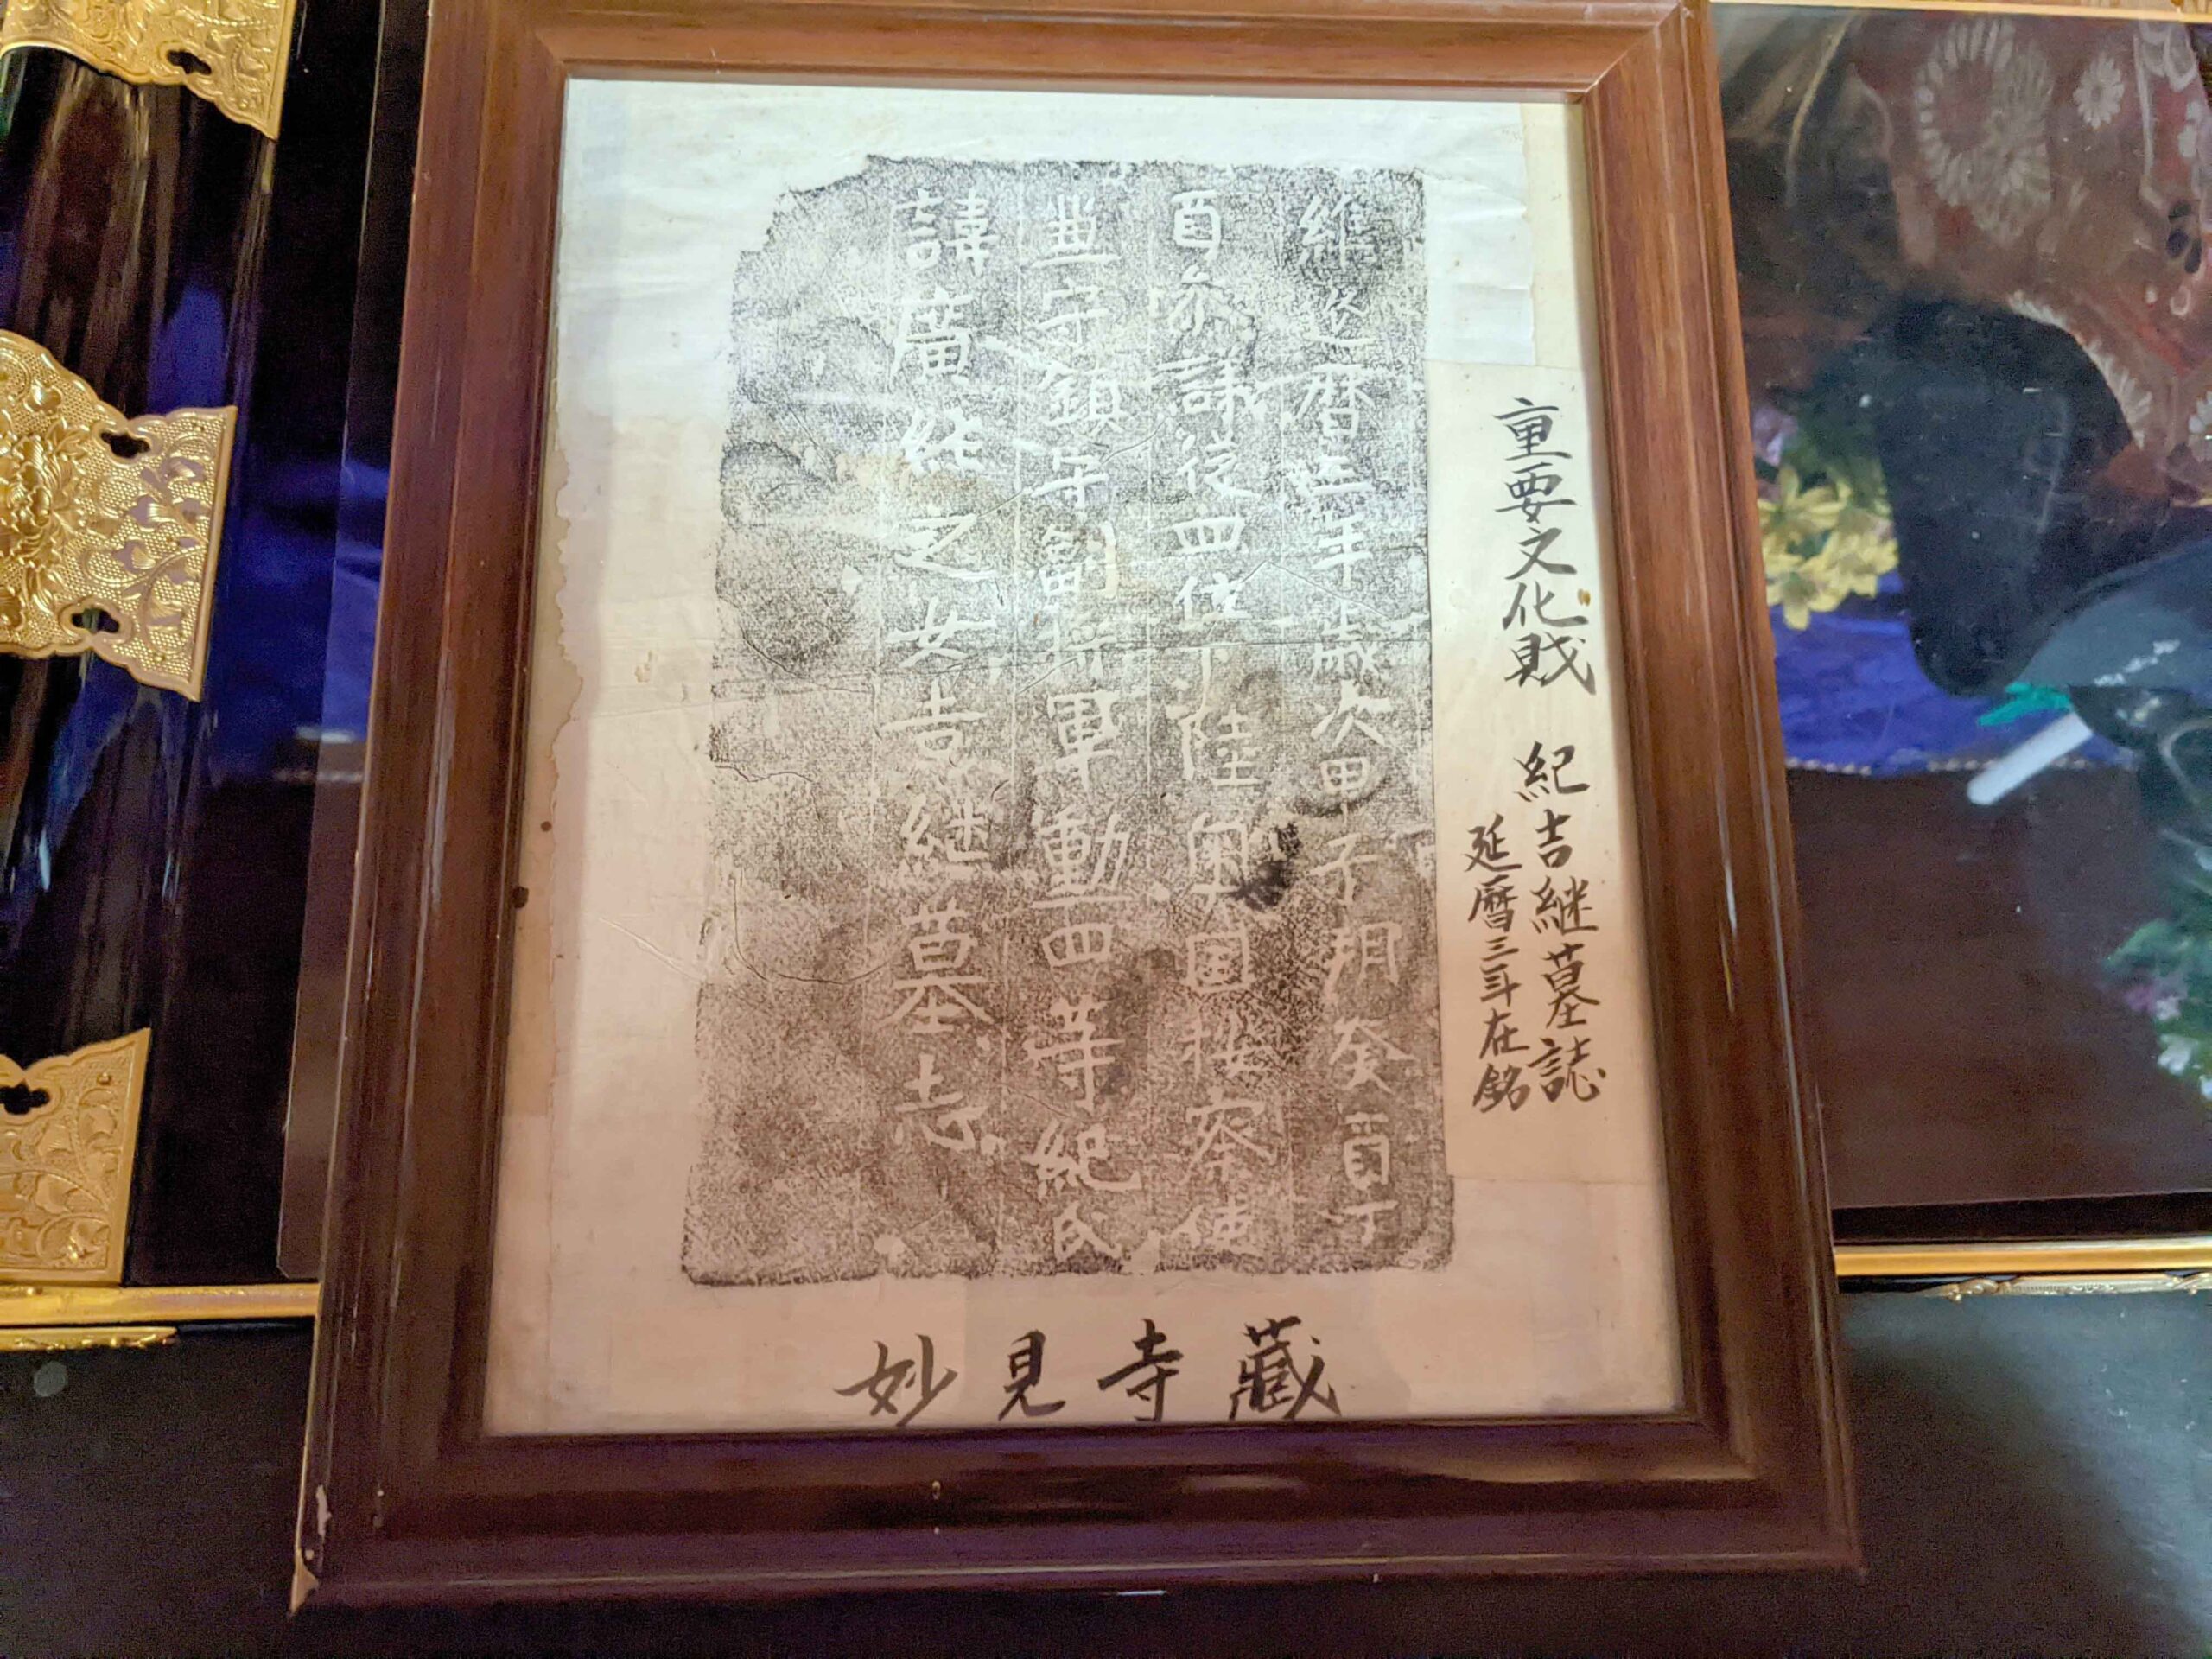 重要文化財 紀吉継墓誌
延暦三年在銘
維延暦三年歳次甲子朔癸酉丁
酉参議従四位下陸奥國按察使
兼守鎮守副将軍勲四等紀氏
諱廣純之女吉継墓志
妙見寺藏